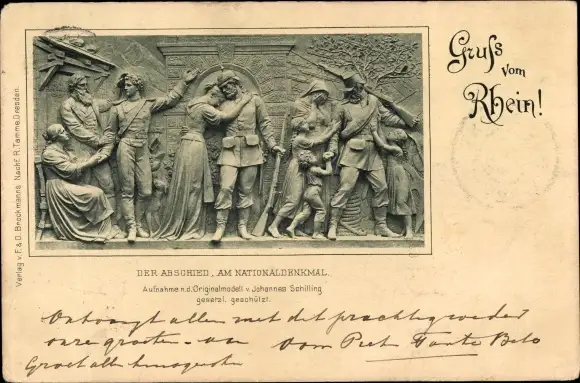 Gruſs vom Rhein!
Verlag v. F. & O. Brockmanns Nachf. R. Tamme, Dresden.
DER ABSCHIED „AM NATIONALDENKMAL.
Aufnahme n. d. Originalmodell v. Johannes Schilling
gesetzl. geschützt.
Ontvangt allen met dit prachtig weder
onze groeten - van Oom Piet Tante Beb
Groet allen